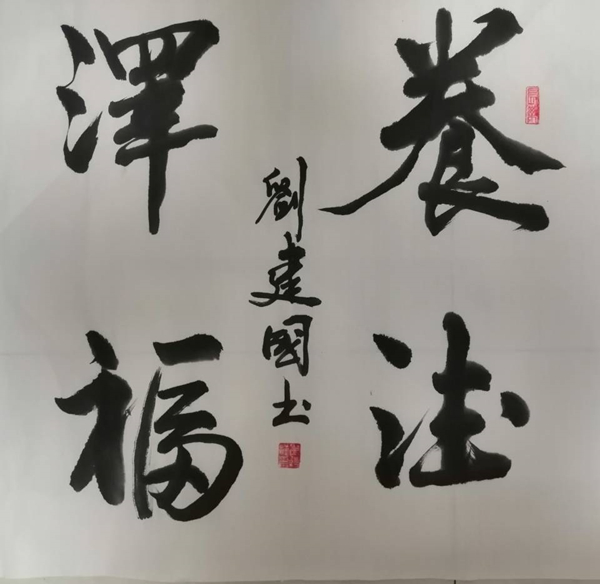 養法
澤福
劉建國书